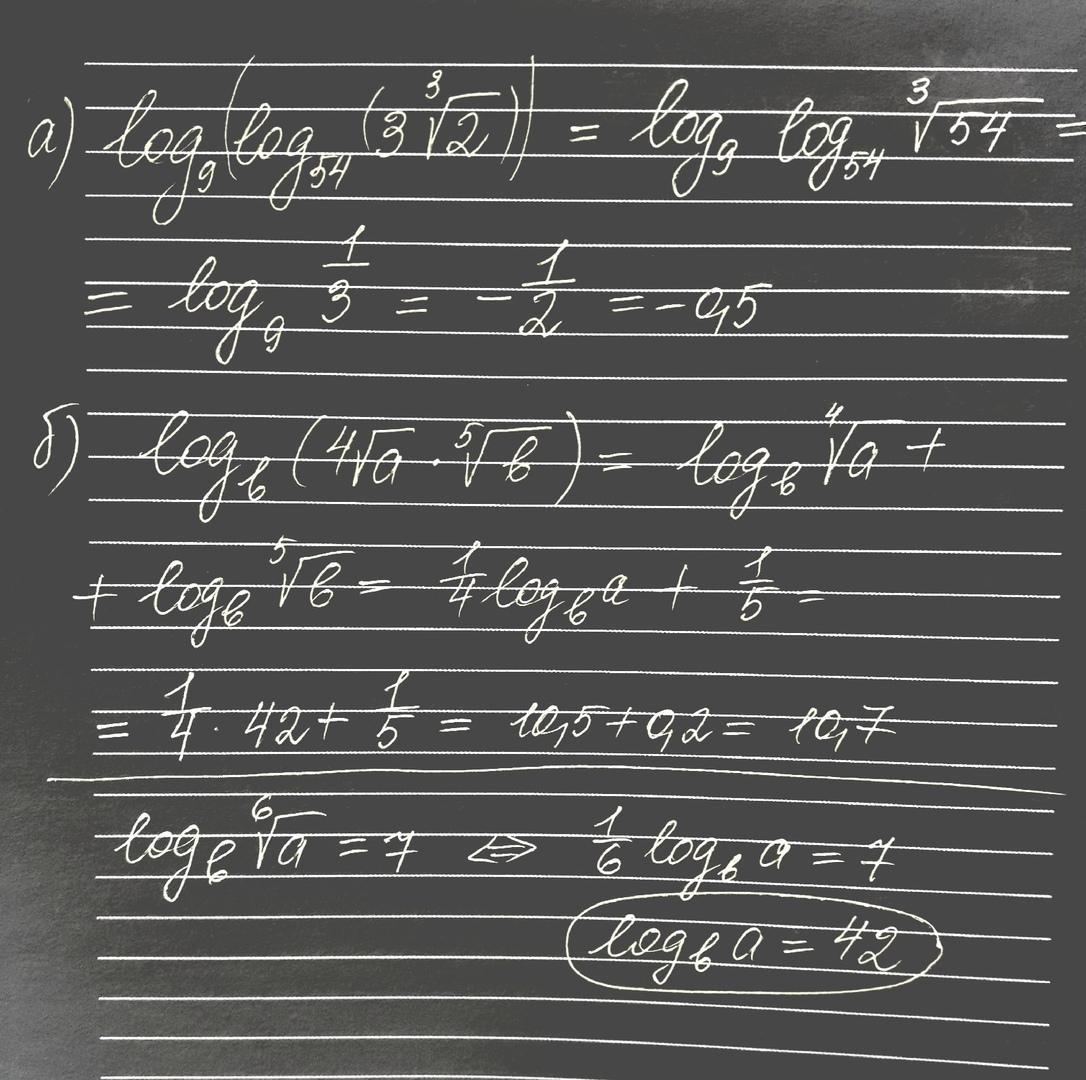 а) log₉(log₅₄(3∛2)) = log₉ log₅₄ ∛54 =
= log₉ 1/3 = -1/2 = -0,5
б) log_b(⁴√a · ⁵√b) = log_b ⁴√a +
+ log_b ⁵√b = 1/4 log_b a + 1/5 =
= 1/4 · 42 + 1/5 = 10,5 + 0,2 = 10,7
log_b ⁶√a = 7 ⇔ 1/6 log_b a = 7
log_b a = 42